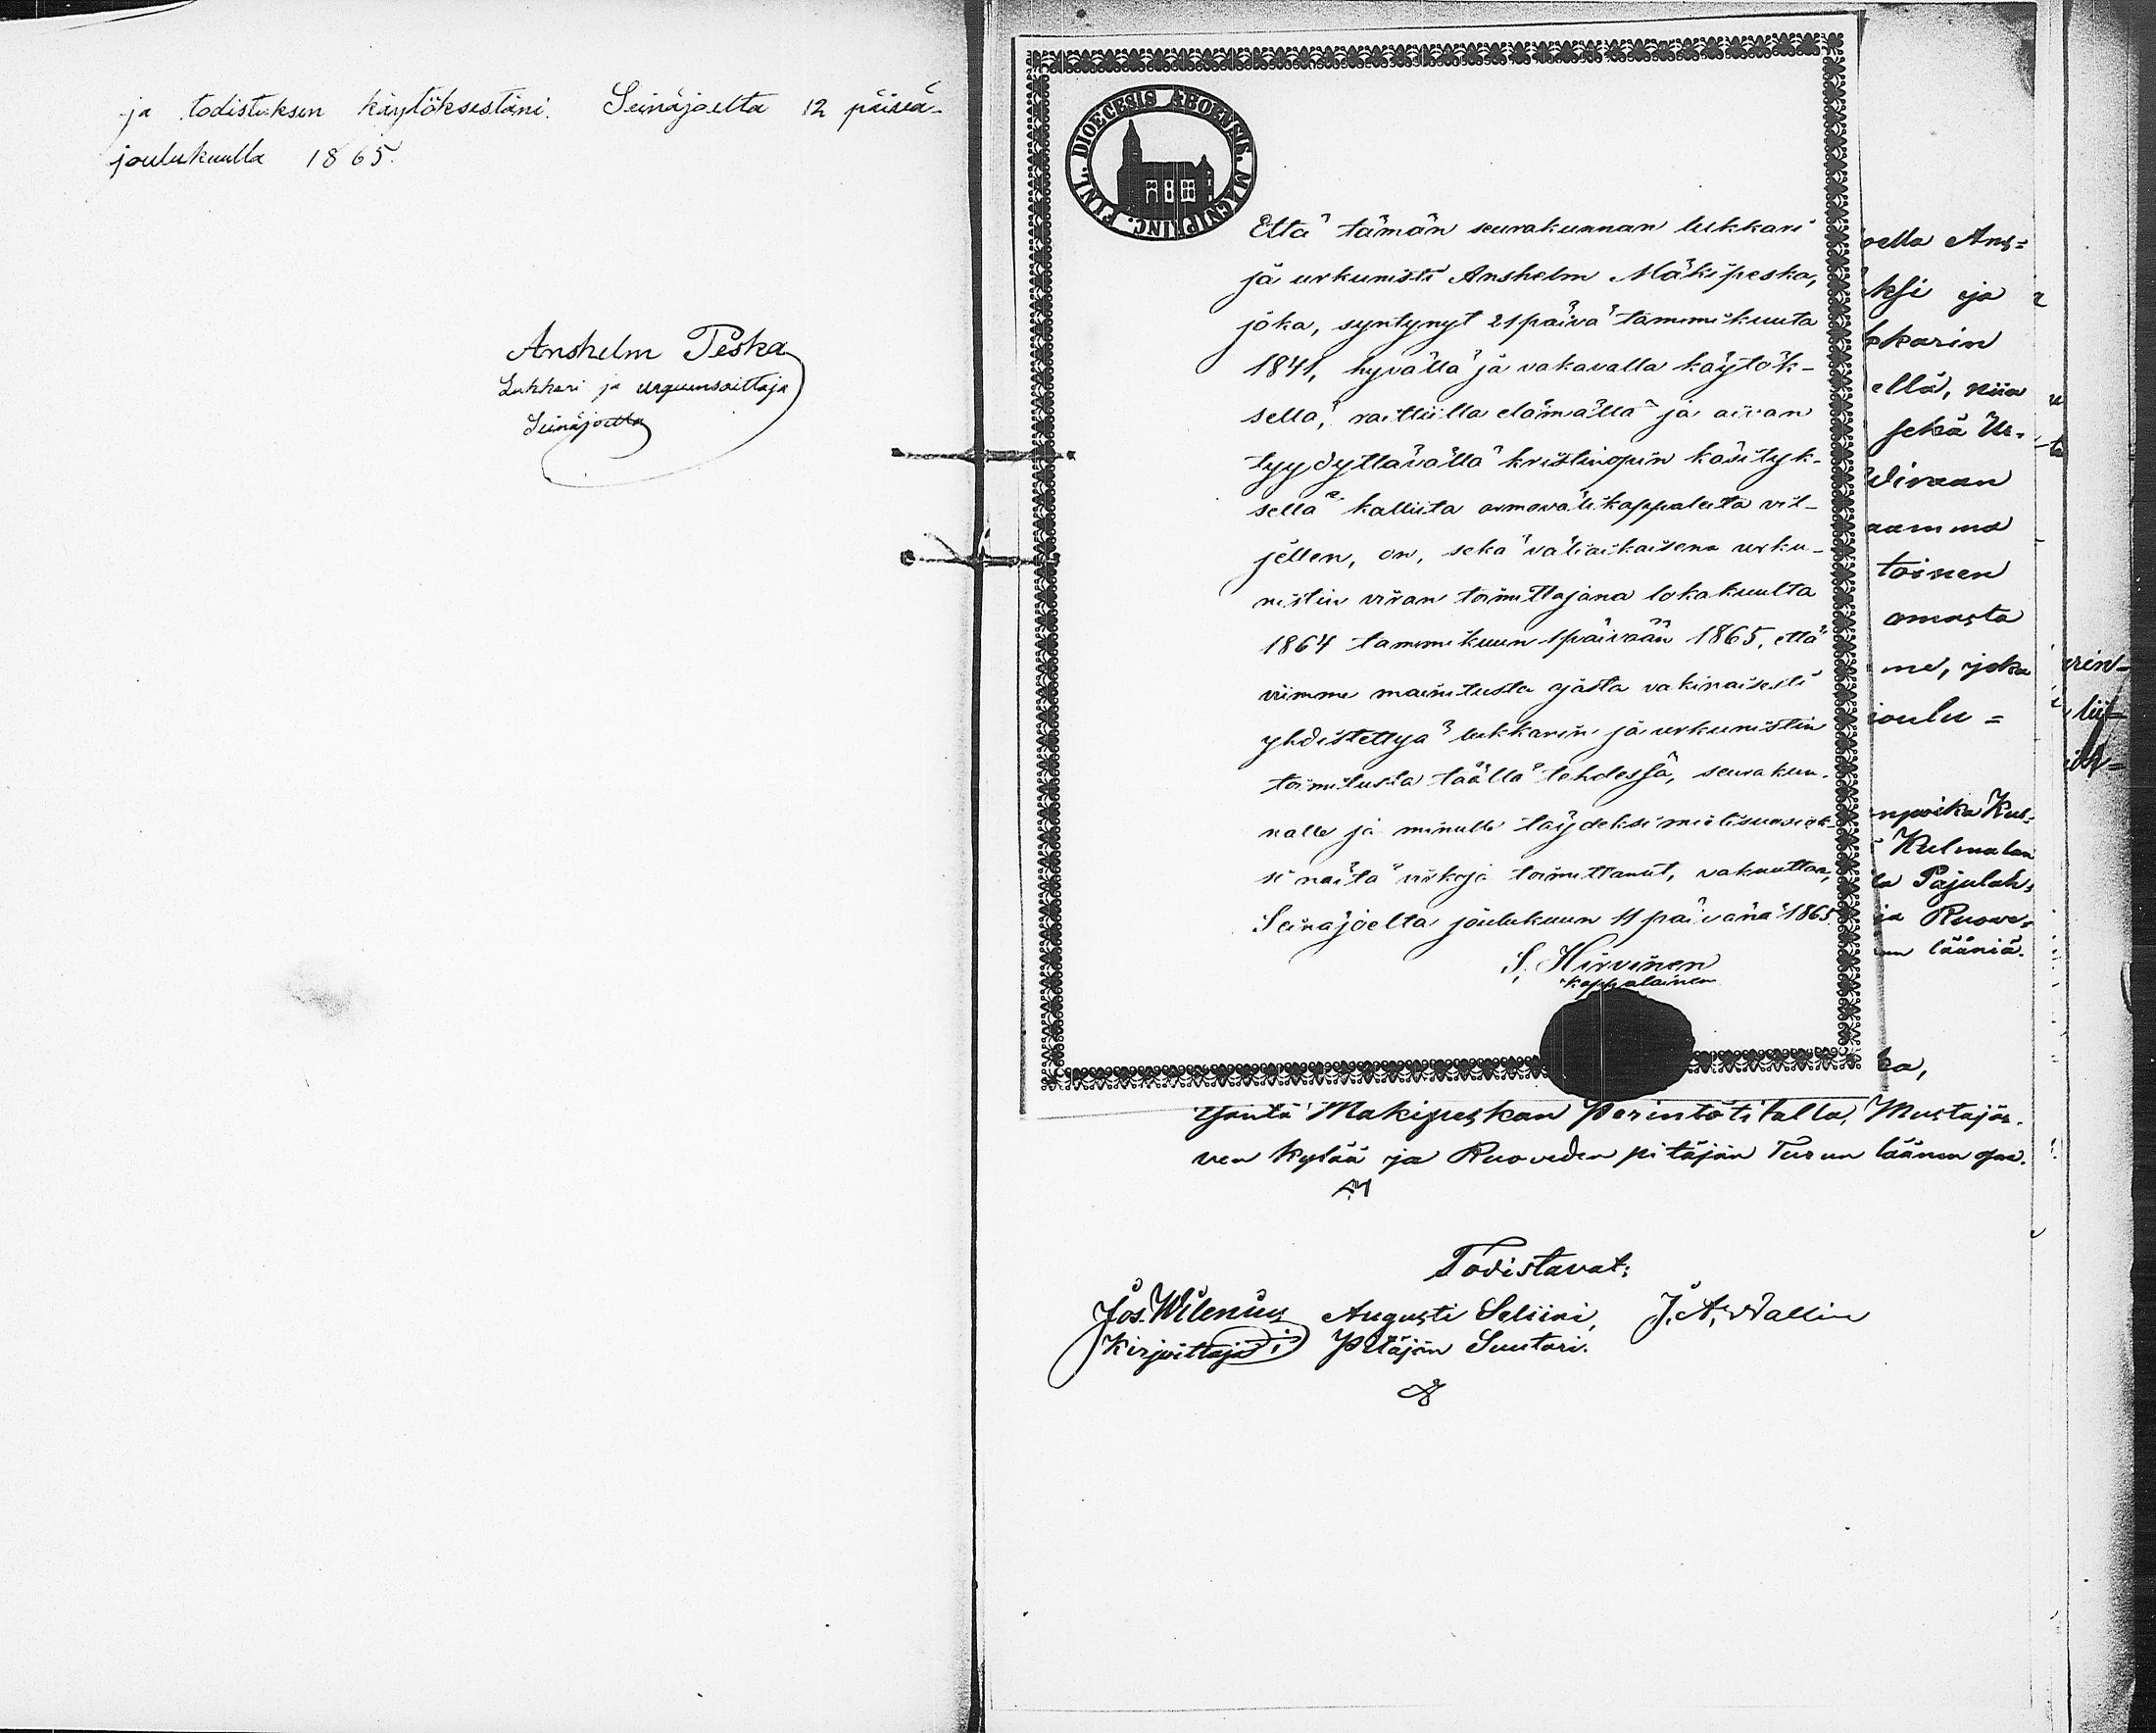 ja todistuksen käytöksestäni. Seinäjoelta 12 päivä
joulukuulla 1865.
Anshelm Peska
Lukkari ja urquunsoittaja
Seinäjoella
FINL. DIOECESIS ABOENSIS. MAGNI PRINC.
Että tämän seurakunnan lukkari
ja urkunisti Anshelm Mäkipeska,
joka, syntynyt 21 päivä tammikuuta
1841, hyvällä ja vakavalla käytök-
sellä, raittiilla elämällä ja aivan
tyydyttävällä kristinopin käsityk-
sellä kalliita armovälikappaleita vil-
jellen, on, sekä väliaikaisena urku-
nistin viran toimittajana lokakuulta
1864 tammikuun 1 päivään 1865, että
viimme mainitusta ajasta vakinaisesti
yhdistettyä lukkarin ja urkunistin
toimitusta täällä tehdessä, seurakun-
nalle ja minulle täydeksi mielisuosiok-
si näitä virkoja toimittanut, vakuuttaa,
Seinäjoelta joulukuun 11 päivänä 1865.
S. Hirvinen
kappalainen
oella Ans=
ksi ja
kkarin
ellä, niin
sekä Ur-
divaan
aamma
toinen
omasta
me, joka
joulu=
npoika Kul-
Kulmalan
la Pajulah-
ja Ruowe-
un lääniä.
ka,
Isäntä Mäkipeskan Perintötilalla, Mustajär-
ven kylää ja Ruoveden pitäjän Turun läänin
Todistavat:
Jos. Wilenius Augusti Seliini, J. A. Wallin
Kirjoittaja Pitäjän Suutari.